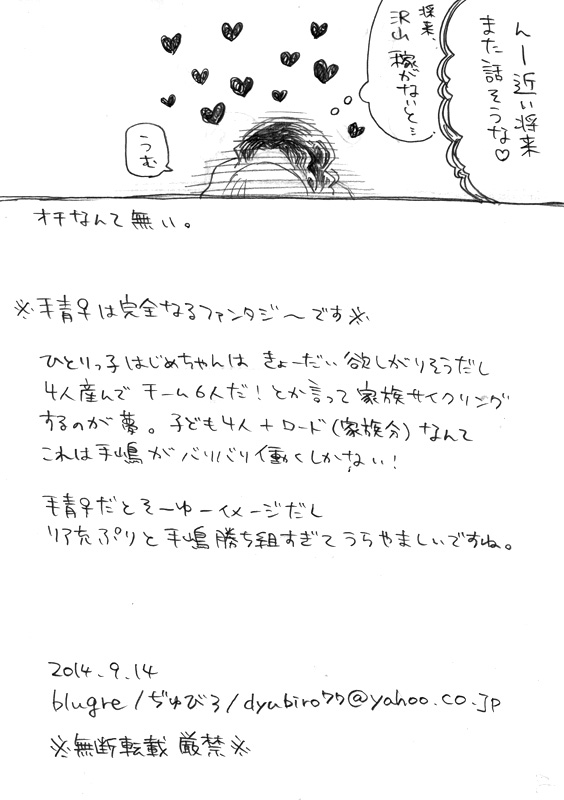 んー近い将来
また話そうな♡
将来、
沢山
稼がないと…
うむ
オチなんて無い。
※手青♀は完全なるファンタジ〜です※
ひとりっ子はじめちゃんは きょーだい欲しがりそうだし
4人産んで チーム6人だ！とか言って家族サイクリング
するのが夢。子ども4人＋ロード(家族分)なんて
これは手嶋がバリバリ働くしかない！
手青♀だとそーゆーイメージだし
リア充ぷりと手嶋勝ち組すぎてうらやましいですね。
2014.9.14
blugre/ぢゅびろ/dyubiro77@yahoo.co.jp
※無断転載 厳禁※